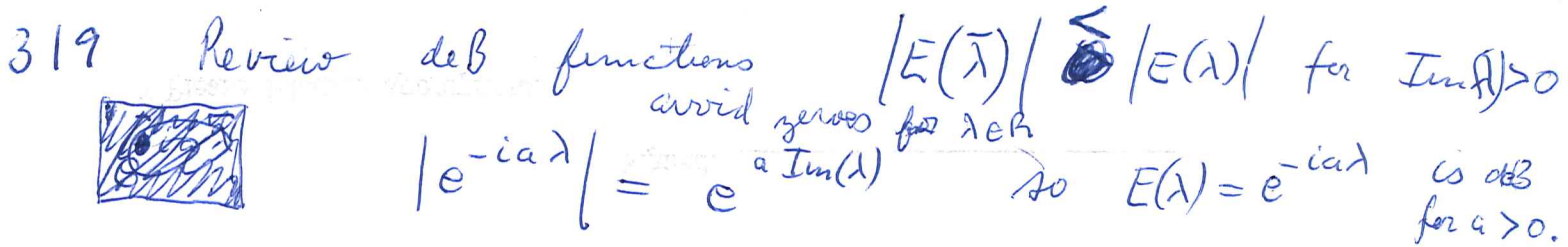 319 Review deB functions |E(λ̄)| < |E(λ)| for Im(λ)>0
avoid zeroes for λ∈R
|e^{-iaλ}| = e^{a Im(λ)} so E(λ) = e^{-iaλ} is deB
for a>0.